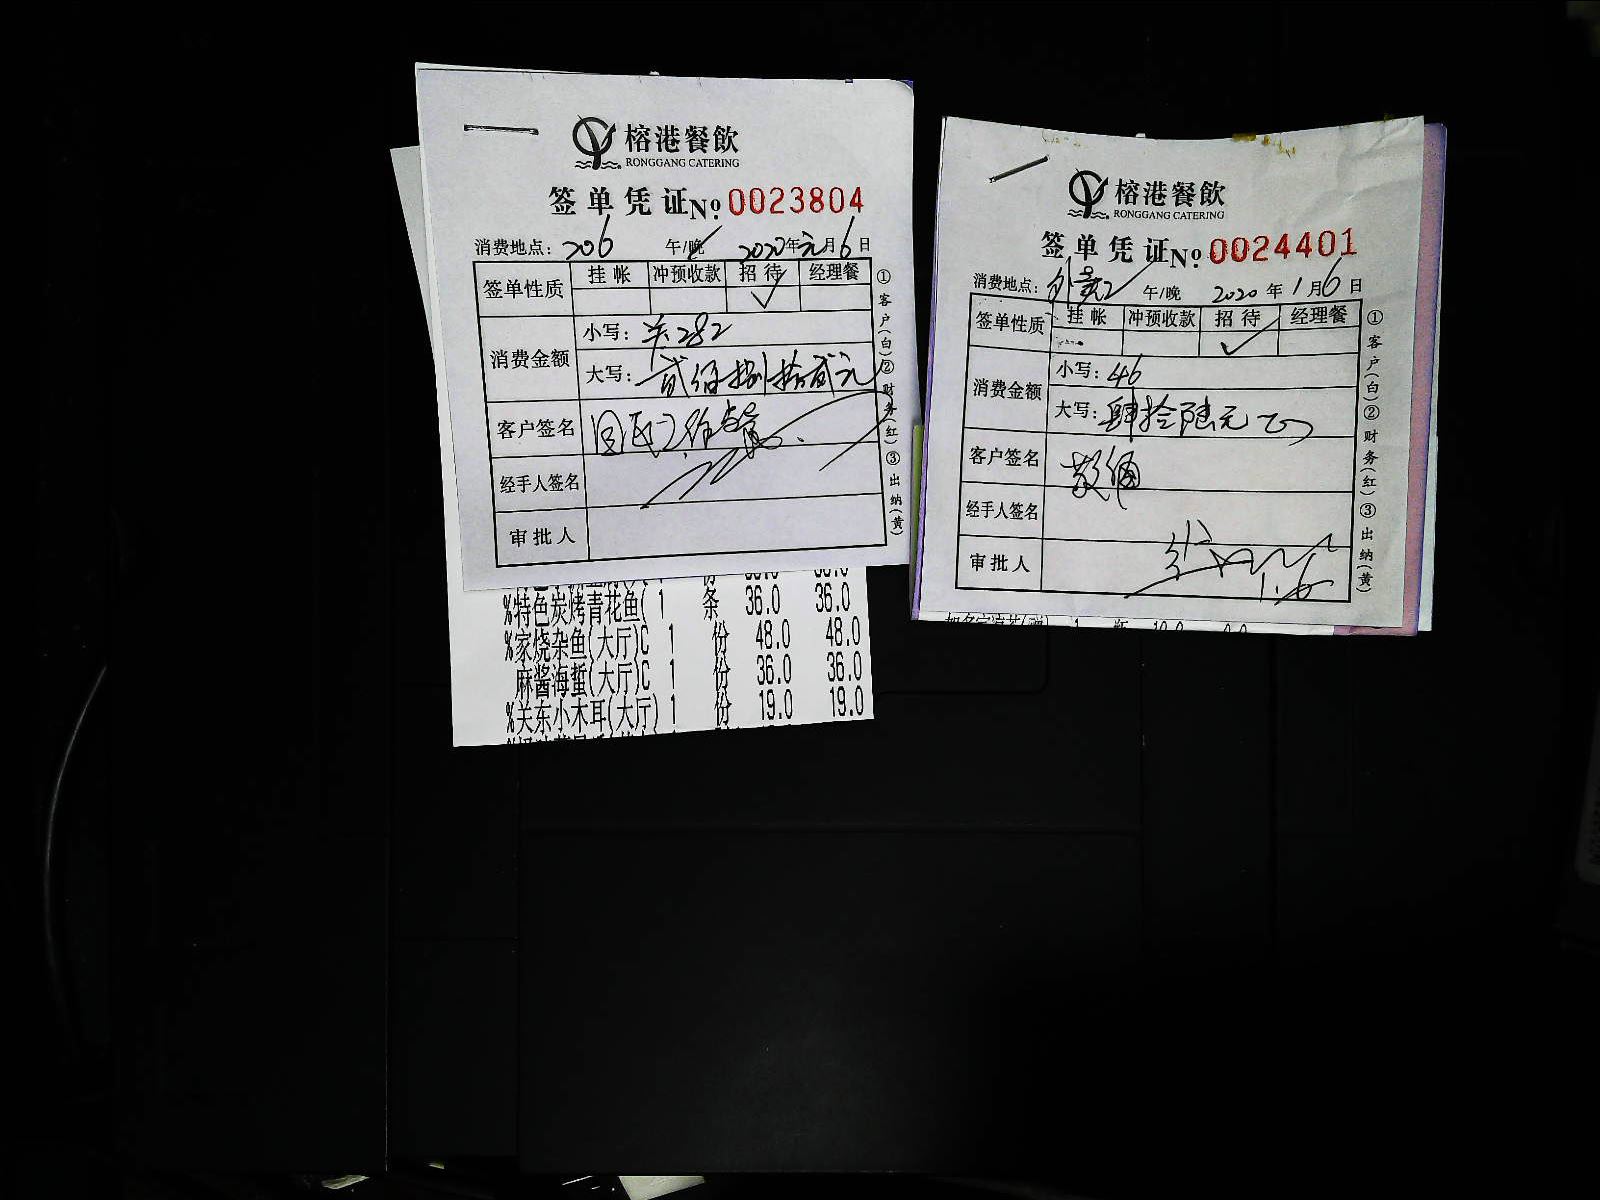 榕港餐飲
RONGGANG CATERING
签单凭证№ 0023804
消费地点：206 午/晚 2020年元月6日
签单性质 挂帐 冲预收款 招待 经理餐
✓
消费金额 小写：¥282
大写：贰佰捌拾贰元
客户签名
经手人签名
审批人
①客户(白)②财务(红)③出纳(黄)
%特色炭烤青花鱼( 1 条 36.0 36.0
%家烧杂鱼(大厅)C 1 份 48.0 48.0
麻酱海蜇(大厅)C 1 份 36.0 36.0
%关东小木耳(大厅) 1 份 19.0 19.0
榕港餐飲
RONGGANG CATERING
签单凭证№ 0024401
消费地点：外卖2 午/晚 2020年1月6日
签单性质 挂帐 冲预收款 招待 经理餐
✓
消费金额 小写：46
大写：肆拾陆元
客户签名
经手人签名
审批人
1.6
①客户(白)②财务(红)③出纳(黄)